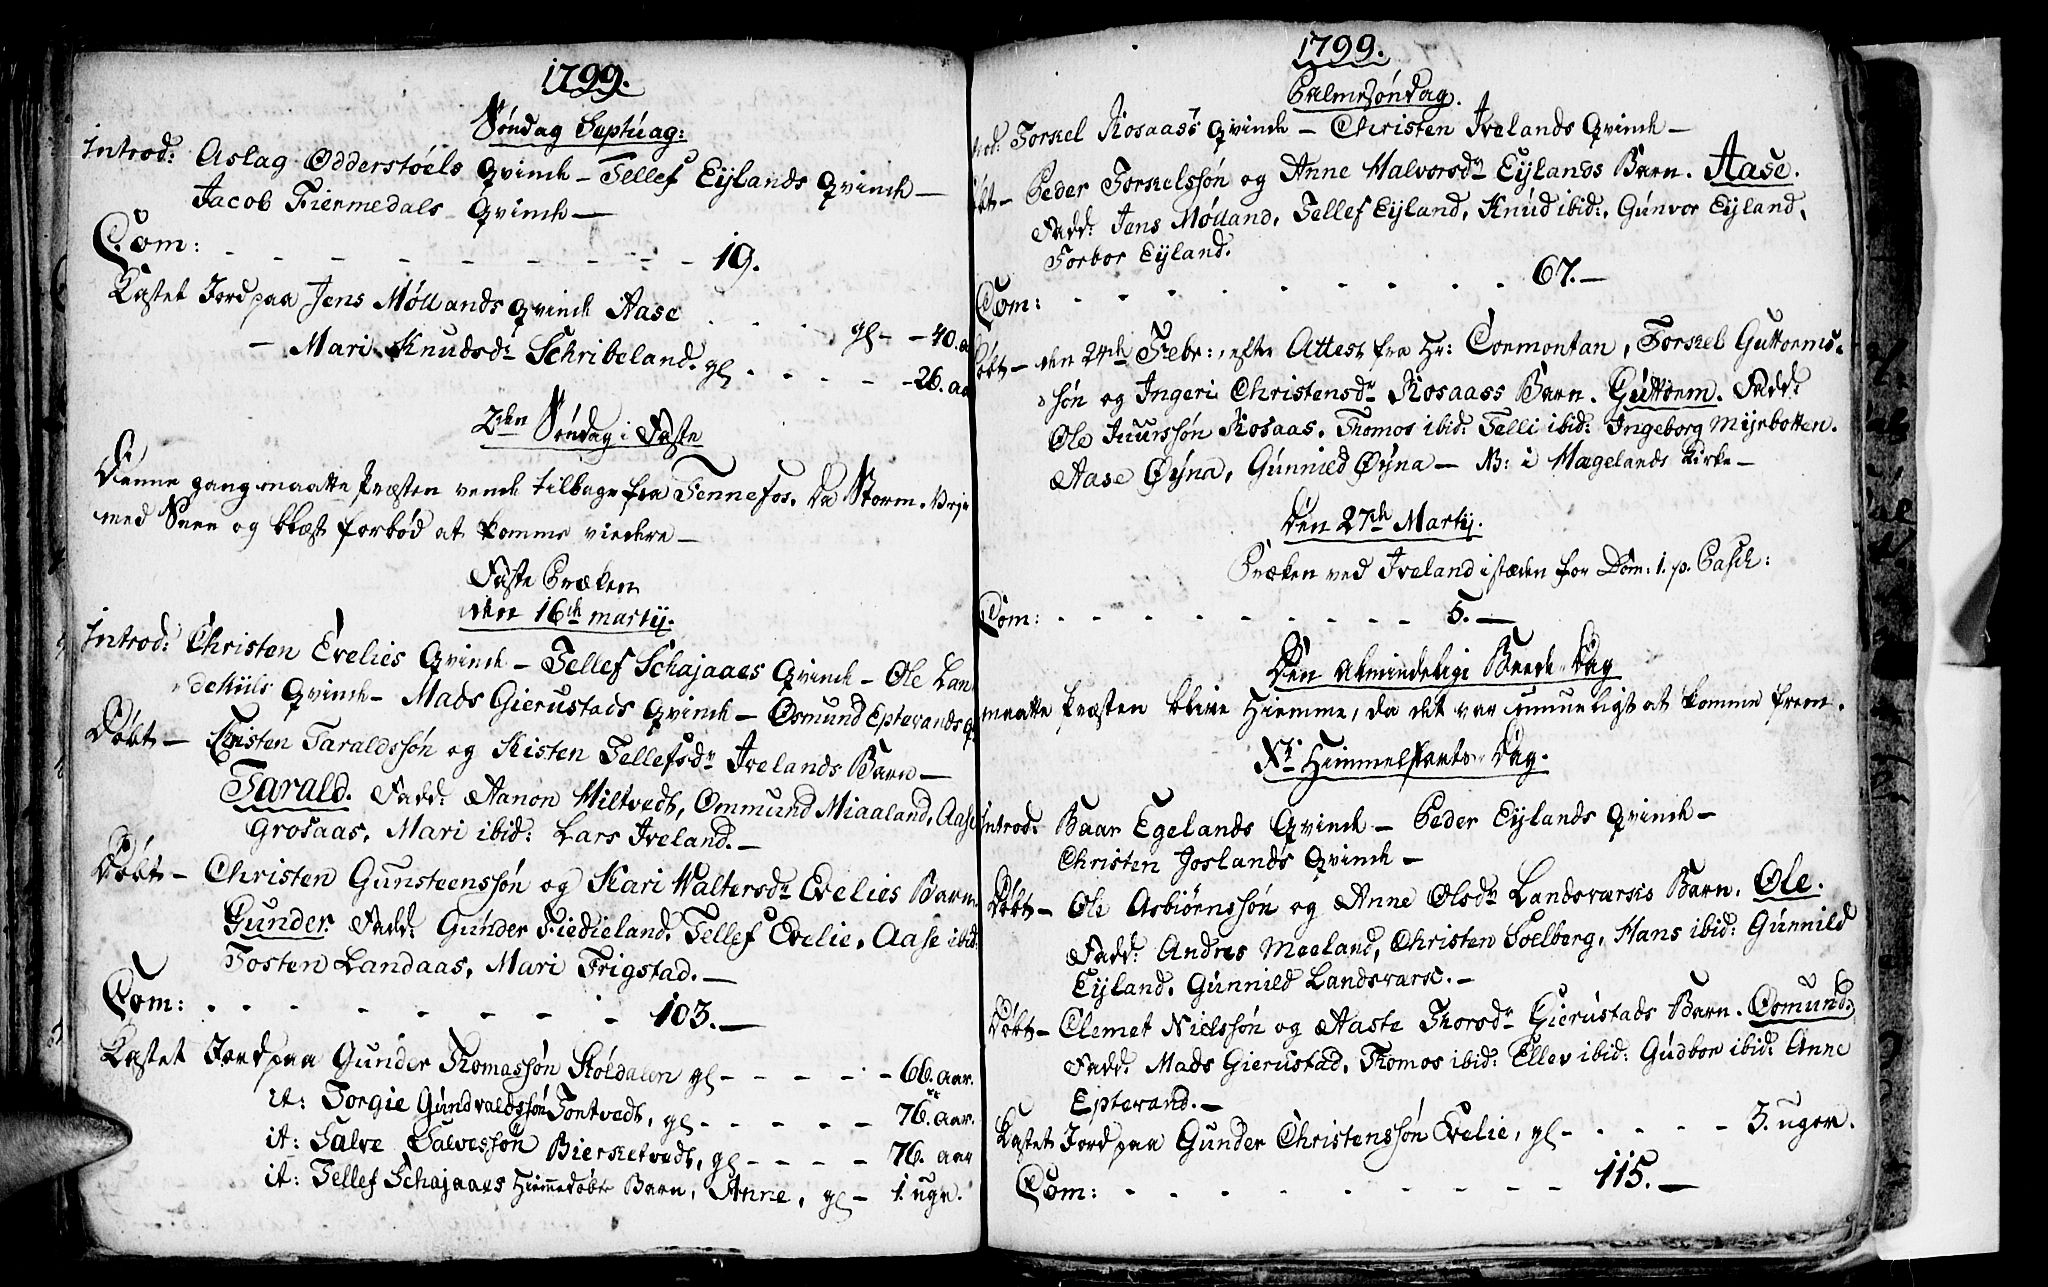 1799.
Søndag Septuag:
Introd: Aslag Odderstøels Qvinde – Tellef Eijlands Qvinde –
Jacob Fiermedals Qvinde –
Com: - - - - - - - - - 19.
Kastet Jord paa Jens Møllands Qvinde Aase . . . gl - - 40. a
– Mari Knudsdr Schribeland. gl - - - - - 26. aa
2den Søndag i Faste
Denne gang maatte Præsten vende tilbage fra Fennefos, da Storm-Vejr
med Snee og blæst forbød at komme viedere –
Faste Præken
den 16de Martij.
Introd: Christen Evelies Qvinde – Tellef Schajaaes Qvinde – Ole Lan
dekiils Qvinde – Mads Gierustads Qvinde – Osmund Epterands Q
Døbt – Torsten Taraldssøn og Kisten Tellefsdr Ivelands Barn –
Tarald. Fadd: Aanon Hiltvedt, Ommund Miaaland, Aase
Grosaas, Mari ibid: Lars Iveland. –
Døbt – Christen Gunsteenssøn og Kari Waltersdr Evelies Barn
Gunder. Fadd: Gunder Fiedieland, Tellef Evelie, Aase ibid:
Tosten Landaas, Mari Frigstad. –
Com: - - - - - - - - 103. –
Kastet Jord paa Gunder Thomassøn Skøldalen gl - - - - - 66. aar.
it: Torgie Gundvaldssøn Tontvedt, gl - - - - - 76. aar.
it: Salve Salvessøn Bierketvedt, gl - - - - 76. aar
it: Tellef Schajaaes Hiemmedøbte Barn, Anne, gl - 1. uge.
1799.
Palmesøndag.
Torkel Rosaas's Qvinde – Christen Ivelands Qvinde –
Peder Torkelssøn og Anne Halvorsdr Eijlands Barn. Aase.
Fadd: Jens Mølland, Tellef Eijland, Knud ibid:, Gunvor Eijland,
Torbor Eijland.
Com: - - - - - - - - 67. –
Døbt – den 24de Febr: efter Attest fra Hr: Cormontan, Torkel Guttorms-
søn og Ingeri Christensdr Rosaass Barn. Guttorm. Fadd:
Ole Rosaas, Thomos ibid: Telli ibid: Ingeborg Myrbotten.
Aase Øyna, Gunnild Øyna – NB: i Hægelands Kirke –
Den 27de Martij.
Præken ved Iveland i stæden for Dom: 1. p. Pasch:
Com: - - - - - - - - - 5. –
Den Almindelige Beede-Dag
maatte Præsten blive Hiemme, da det var umueligt at komme frem.
Xti Himmelfarts-Dag.
Introd: Baar Egelands Qvinde – Peder Eijlands Qvinde –
Christen Joslands Qvinde –
Døbt – Ole Asbiørnssøn og Anne Olsdr Landsværks Barn. Ole.
Fadd: Andres Meeland, Christen Soelberg, Hans ibid: Gunnild
Eijland, Gunnild Landsværk. –
Døbt – Clemet Nielssøn og Aaste Thorsdr Gierustads Barn. Osmund.
Fadd: Mads Gierustad, Thomos ibid: Ellev ibid: Gudbor ibid: Anne
Epterand. –
Kastet Jord paa Gunder Christenssøn Evelie, gl - - - - - 3. uger.
Com: - - - - - - - - 115. –